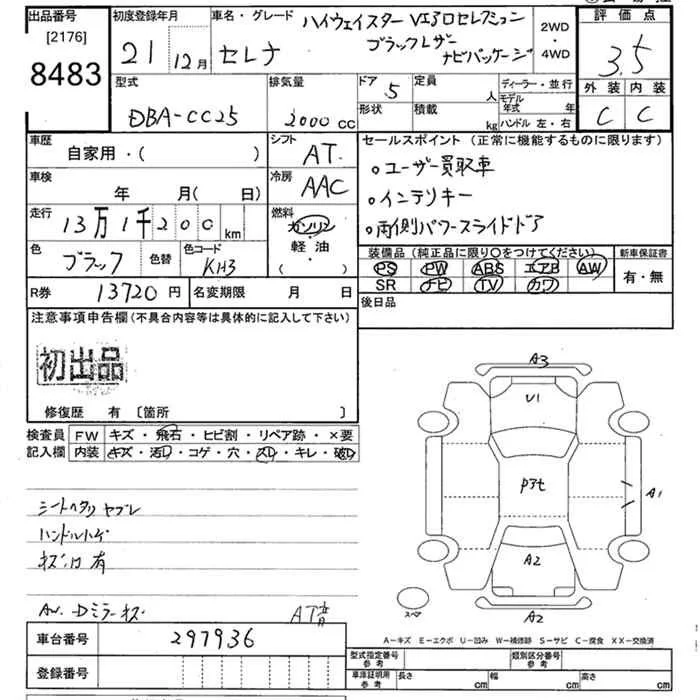 出品番号
[2176]
8483
初度登録年月
21 12月
車名・グレード
ハイウェイスター Vエアロセレクション
セレナ ブラックレザー
ナビパッケージ
2WD
・
4WD
評価点
3.5
外装 内装
C C
型式
DBA-CC25
排気量
2000 CC
ドア 5
定員 人
形状
積載 kg
ディーラー・並行
モデル年式 年
ハンドル 左・右
車歴
自家用・( )
シフト
AT
セールスポイント (正常に機能するものに限ります)
。ユーザー買取車
。インテリキー
。両側パワースライドドア
車検
年 月( 日)
冷房
AAC
走行
13万1千200km
燃料
ガソリン
・
軽・油
( )
色
ブラック
色替
色コード
KH3
装備品 (純正品に限り○をつけてください)
PS PW ABS エアB AW
SR ナビ TV カワ
新車保証書
有・無
R券 13720円
名変期限 月 日
後日品
注意事項申告欄 (不具合内容等は具体的に記入して下さい)
初出品
修復歴 有 〔箇所 〕
検査員記入欄
FW キズ・飛石・ヒビ割・リペア跡・×要
内装 キズ・汚レ・コゲ・穴・スレ・キレ・破レ
シートヘタリ ヤブレ
ハンドルハゲ
ネジ穴 有
AW. Dミラーキズ AT音
A3
U1
Pアセ
A1
A2
A2
スペア
A-キズ E-エクボ U-凹み W-補修跡 S-サビ C-腐食 XX-交換済
車台番号 297936
登録番号
型式指定番号 参考
類別区分番号 参考
車庫証明用 参考 長さ cm 幅 cm 高さ cm